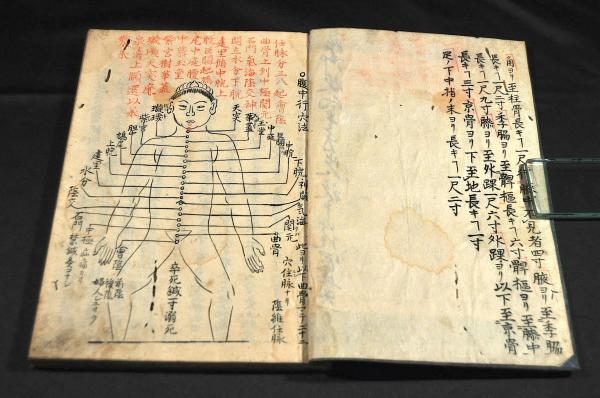 角ヨリ至柱骨長キ一尺行腋中不見者四寸腋ヨリ至季脇
長キ一尺二寸季脇ヨリ至髀樞長キ六寸髀樞ヨリ至膝中
長キ一尺九寸膝ヨリ至外踝一尺六寸外踝ヨリ以下至京骨
長キ三寸京骨ヨリ下至地長キ一寸
足ノ下中指ノ末ヨリ長キ一尺二寸
〇腹中行穴法
任脉分三八起會陰
曲骨上到中極關元
石門氣海陰交神
闕立水分下脘
建里循中脘上
脘巨闕起鳩
尾中庭膻
中慕玉堂
紫宮樹華蓋
璇璣天突廉
泉清上頤還以承
天突
華蓋
玉堂
中庭
巨闕
中脘
下脘
神闕
氣海
此ヨリ以下曲骨
關元
曲骨
穴任脉ナリ
陰維任脉
璇璣
紫宮
膻中
鳩尾
上脘
建里
水分
陰交
石門
禁鍼
中極
會陰
卒死鍼于溺死